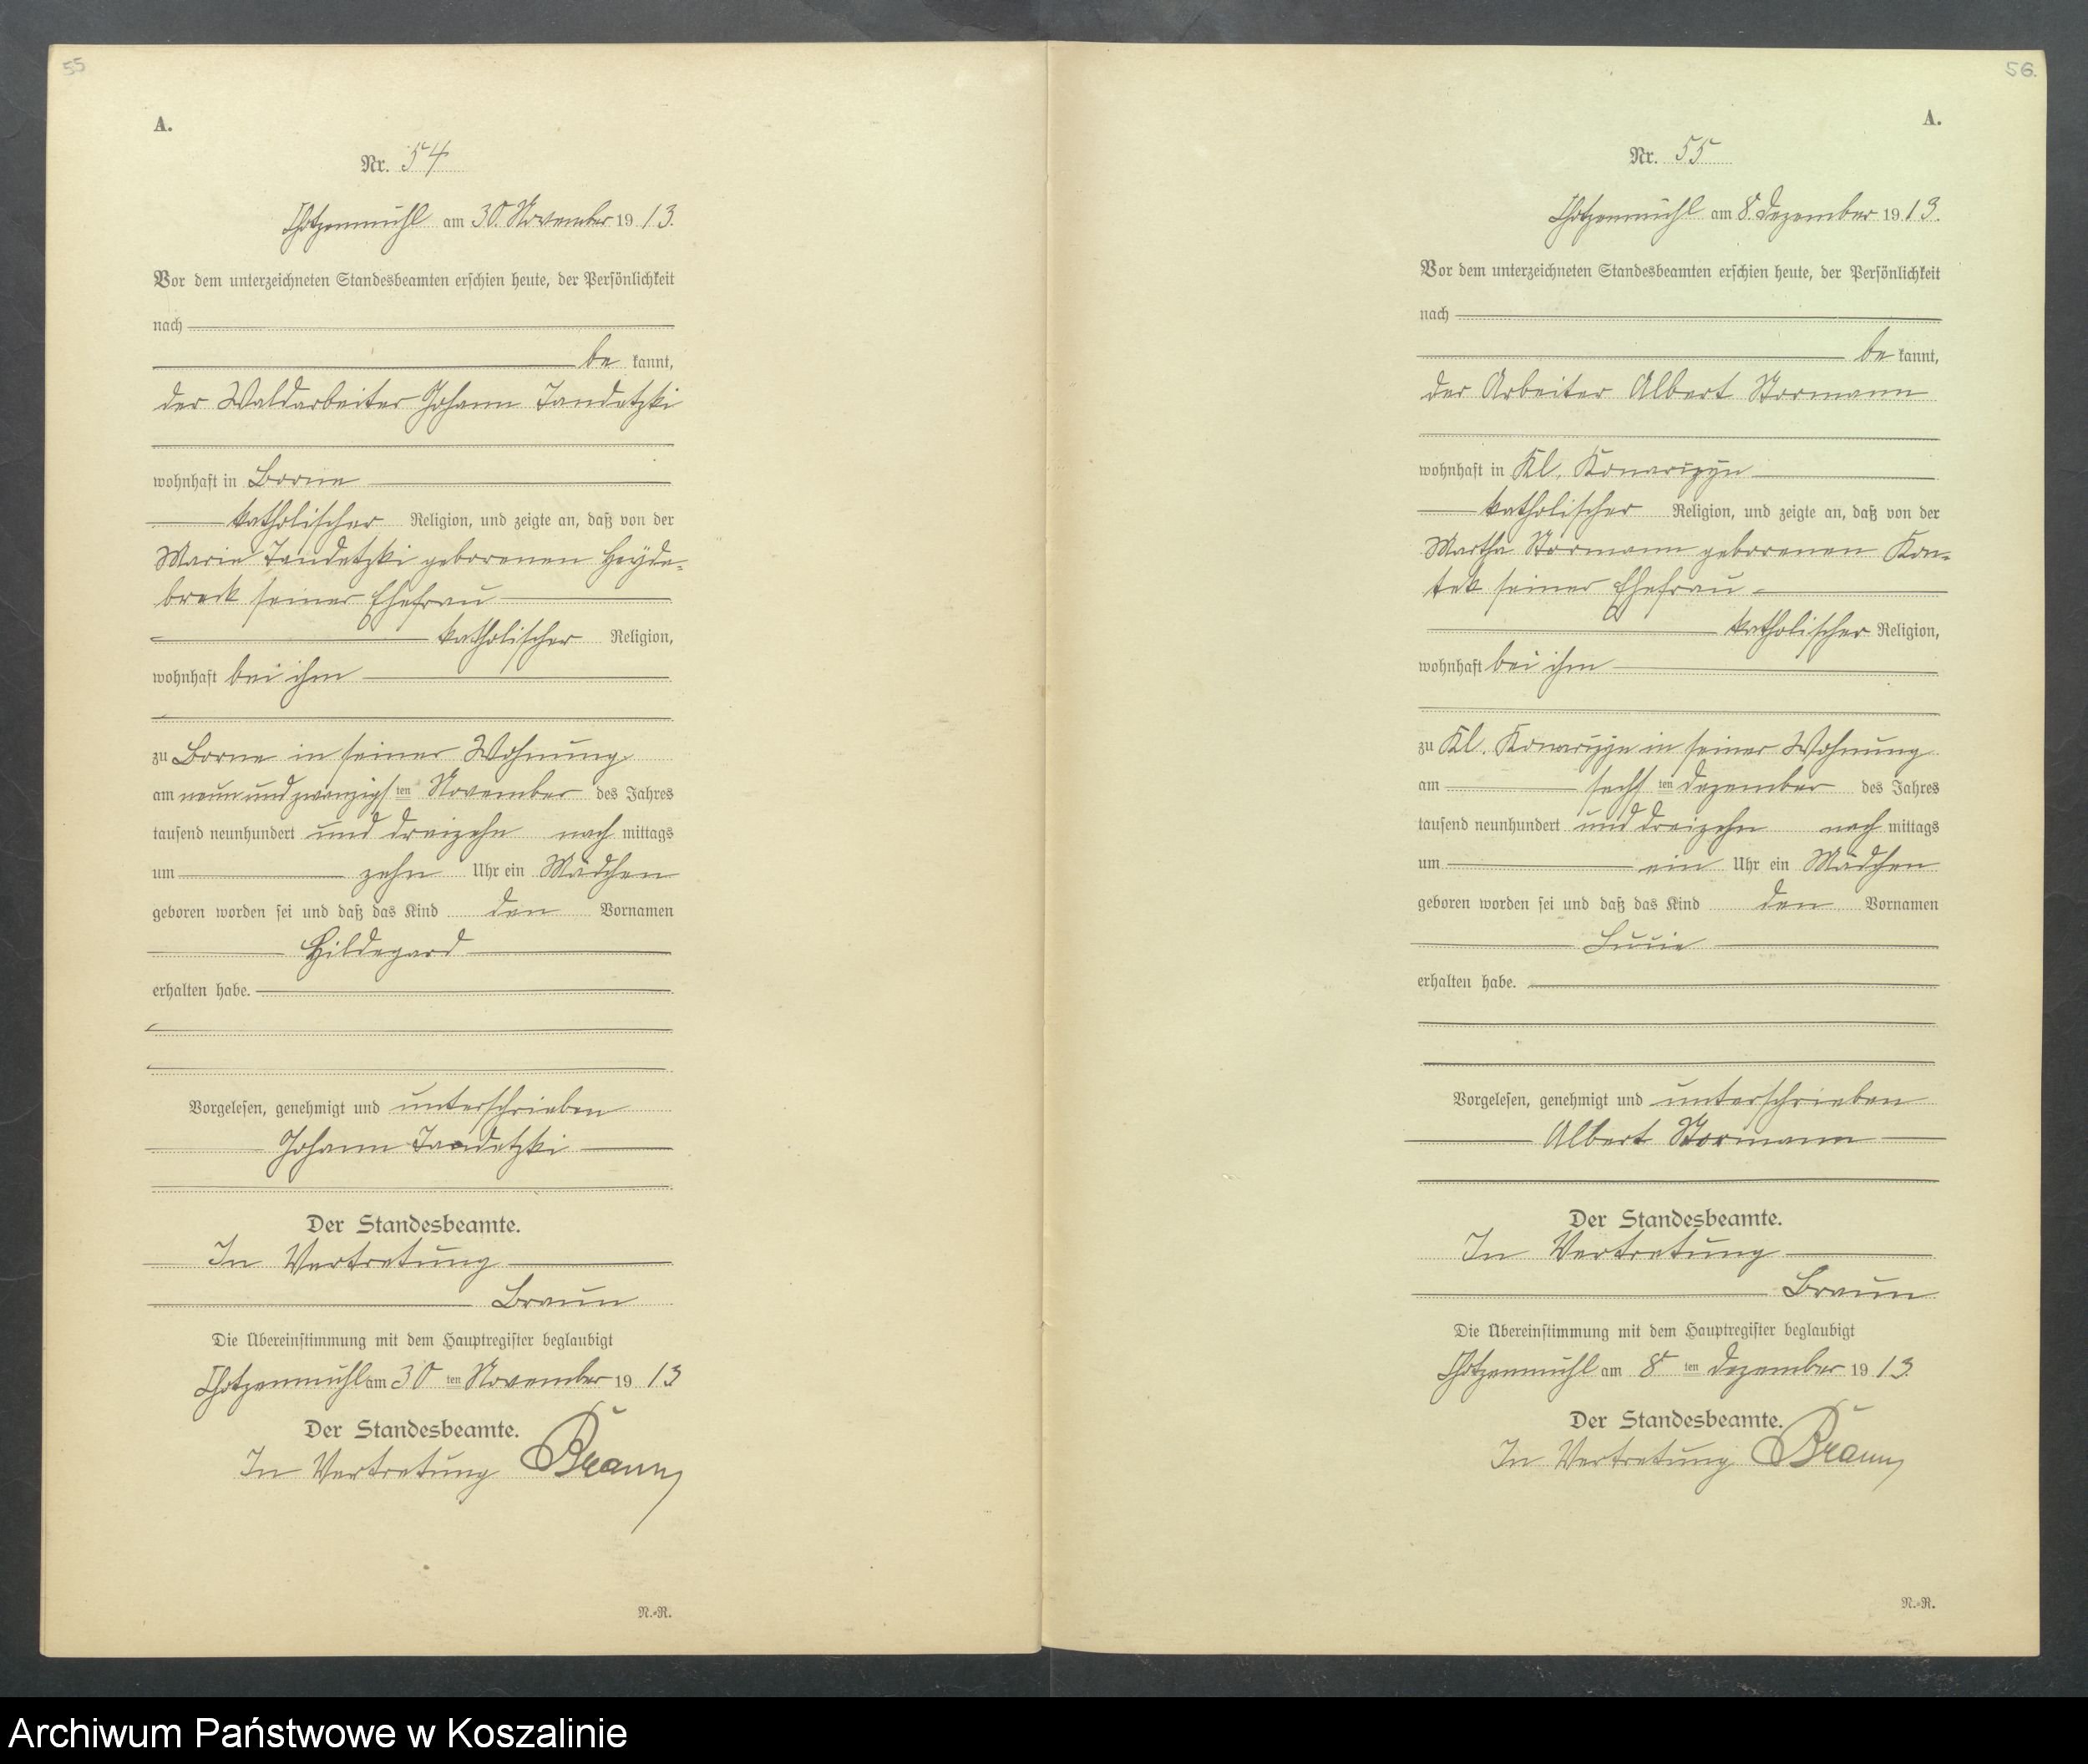 55
A.
Nr. 54
Chotzenmühl am 30. November 1913.
Vor dem unterzeichneten Standesbeamten erschien heute, der Persönlichkeit
nach
be kannt,
der Waldarbeiter Johann Jandetzki
wohnhaft in Borne
katholischer Religion, und zeigte an, daß von der
Marie Jandetzki geborenen Heyde-
breck seiner Ehefrau
katholischer Religion,
wohnhaft bei ihm
zu Borne in seiner Wohnung
am neunundzwanzigsten November des Jahres
tausend neunhundert und dreizehn nachmittags
um zehn Uhr ein Mädchen
geboren worden sei und daß das Kind den Vornamen
Hildegard
erhalten habe.
Vorgelesen, genehmigt und unterschrieben
Johann Jandetzki
Der Standesbeamte.
In Vertretung
Braun
Die Übereinstimmung mit dem Hauptregister beglaubigt
Chotzenmühl am 30 ten November 1913
Der Standesbeamte.
In Vertretung Braun
N.-R.
56.
A.
Nr. 55
Chotzenmühl am 8. Dezember 1913.
Vor dem unterzeichneten Standesbeamten erschien heute, der Persönlichkeit
nach
be kannt,
der Arbeiter Albert Stormann
wohnhaft in Kl. Konarczyn
katholischer Religion, und zeigte an, daß von der
Martha Stormann geborenen Kon-
tek seiner Ehefrau
katholischer Religion,
wohnhaft bei ihm
zu Kl. Konarczyn in seiner Wohnung
am sechsten Dezember des Jahres
tausend neunhundert und dreizehn nachmittags
um ein Uhr ein Mädchen
geboren worden sei und daß das Kind den Vornamen
Lucie
erhalten habe.
Vorgelesen, genehmigt und unterschrieben
Albert Stormann
Der Standesbeamte.
In Vertretung
Braun
Die Übereinstimmung mit dem Hauptregister beglaubigt
Chotzenmühl am 8 ten Dezember 1913.
Der Standesbeamte.
In Vertretung Braun
N.-R.
Archiwum Państwowe w Koszalinie